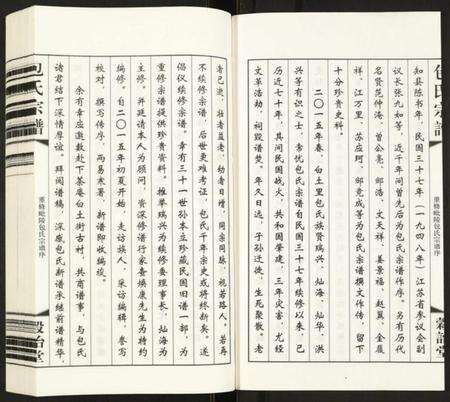 包氏宗譜
重修毗陵包氏宗譜序
穀詒堂
知县陈书年,民國三十七年(一九四八年)江苏省参议会副
议长张九如等,近千年间曾先后为包氏宗谱作序。另有历代
名贤范仲淹、曾公亮、邹浩、文天祥、姜景福、赵翼、金履
祥、江万里、苏应珂、邹竞成等为包氏宗谱撰文作传,留下
十分珍贵史料。
二〇一五年春,白土里包氏族贤瑞兴、灿海、灿华、洪
兴等有识之士,希忧包氏宗谱自民國三十七年续修以来,已
历近七十年,其间民國战火,共和國肇建,三年灾害,尤经
文革浩劫,祠毁谱焚。年久日远,子孙迁徙,生死聚散。老
者已逝,壮者益老,幼者日增,同宗同脉,视若路人。若再
不续修宗谱,后世更难考证,包氏千年宗史或将终断矣。遂
倡仪续修宗谱。幸有三十一世孙本立珍藏民國旧谱一部,为
重修宗谱提供珍贵资料。推举瑞兴为续修委理事长,灿海为
主修。并延请本人为顾问,资深修谱行家查焕康先生为特约
编修。自二〇一五年初夏开始,走访族人,采访编辑,誊写
校对,撰写传序,两易寒暑,新谱即收编竣。
余有幸应邀数赴下荼庵白土街古村,共商谱事,与包氏
诸君结下深情厚谊。拜阅谱稿,深感包氏新谱承继前谱精华,
包氏宗譜
重修毗陵包氏宗譜序
穀詒堂